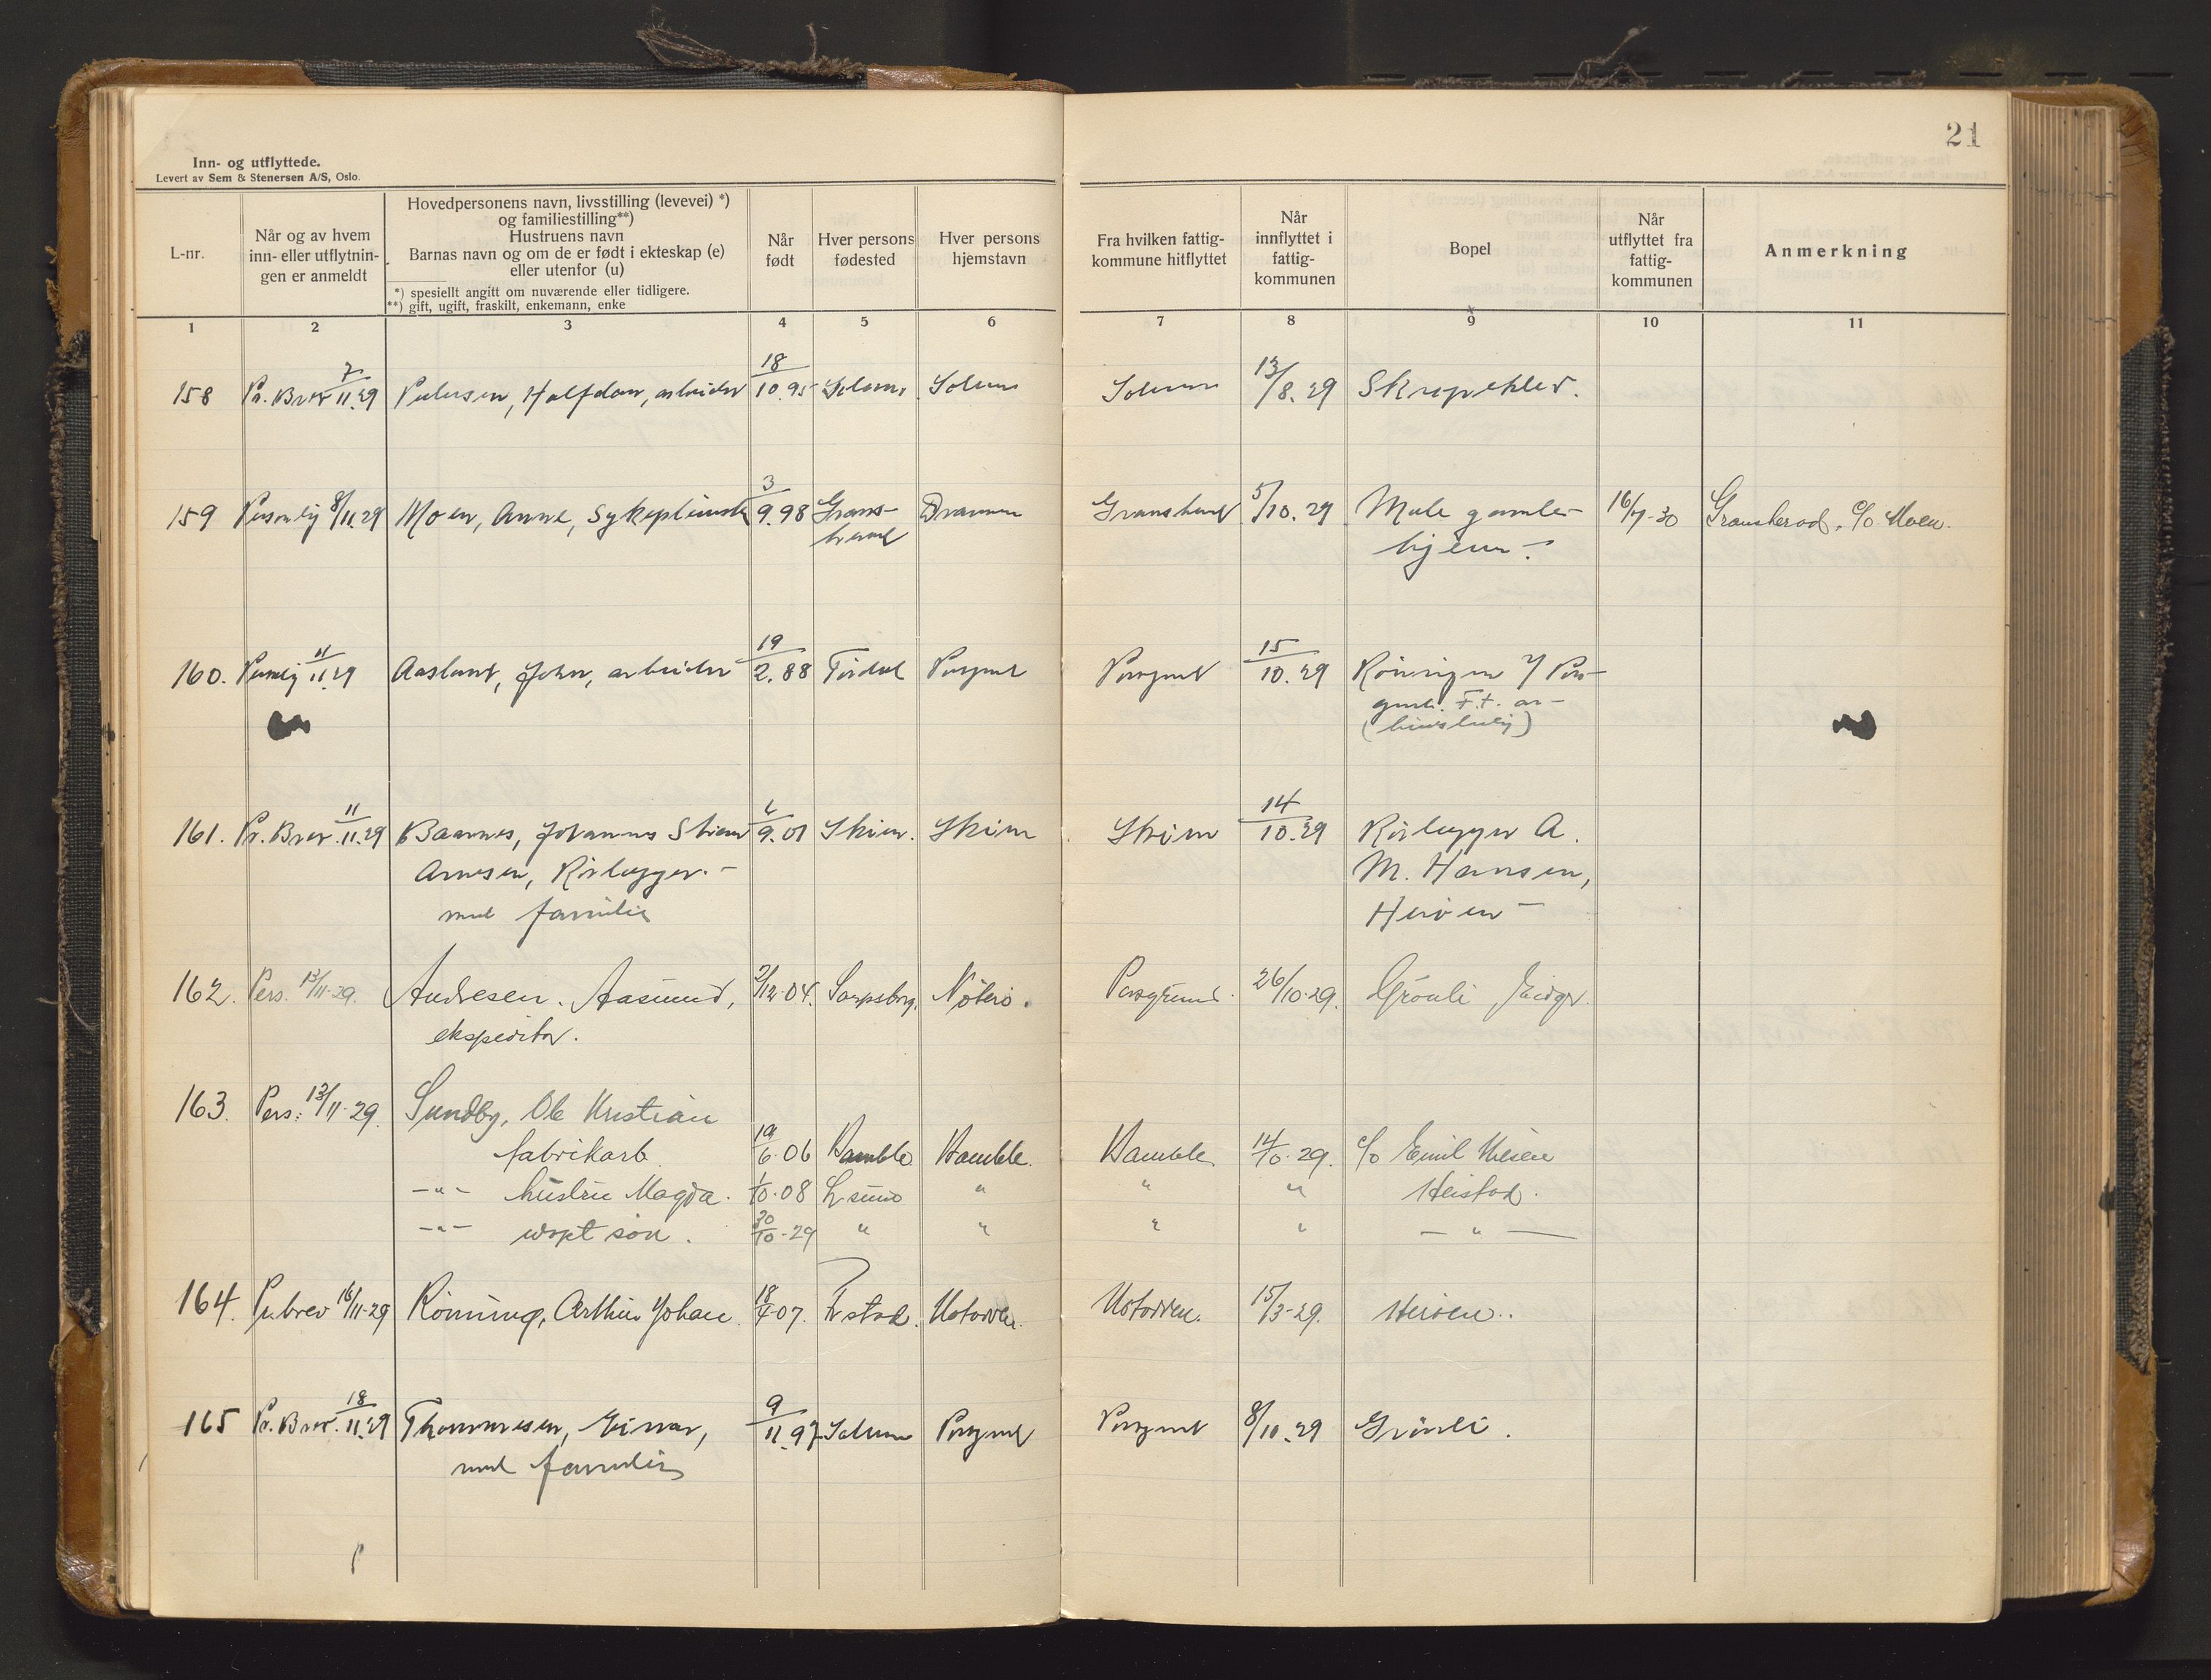 21
Inn- og utflyttede.
Levert av Sem & Stenersen A/S, Oslo.
L-nr.
Når og av hvem
inn- eller utflytnin-
gen er anmeldt
Hovedpersonens navn, livsstilling (levevei) *)
og familiestilling**)
Hustruens navn
Barnas navn og om de er født i ekteskap (e)
eller utenfor (u)
*) spesiellt angitt om nuværende eller tidligere.
**) gift, ugift, fraskilt, enkemann, enke
Når
født
Hver persons
fødested
Hver persons
hjemstavn
Fra hvilken fattig-
kommune hitflyttet
Når
innflyttet i
fattig-
kommunen
Bopel
Når
utflyttet fra
fattig-
kommunen
Anmerkning
1 2 3 4 5 6 7 8 9 10 11
158 Pr. Brev 7/11.29 Pedersen, Halfdan, arbeider 18/10.95 Solum Solum Solum 13/8.29
159 Personlig 8/11.29 Moen, Anne, Sykepleierske 3/9.98 Grans- Drammen Gransherad 5/10.29 Mule gamle- 16/7-30 Gransherad, c/o Moen.
herad hjem -
160. Personlig 11/11.29 Aasland, John, arbeider 19/2.88 Tørdal Porsgrund Porsgrund 15/10.29
161. Pr. Brev. 11/11.29 Baarnes, Johannes 9.01 Skien. Skien Skien 14/10.29 Rørlegger A.
Arnesen, Rørlegger. - M. Hansen,
med familie Herøen -
162. Pers. 13/11-29. Andresen. Aasmund, 2/12-04. Sarpsborg. Nøterø. Porsgrund. 26/10-29. Grönli Eidgr.
ekspeditør.
163. Pers: 13/11-29. Sundby, Ole Kristian
fabrikarb. 19/6-06 Bamble Bamble. Bamble 14/10-29. c/o Emil
-"- hustru Magda. 1/10-08 " " " Heistad.
-"- udøpt søn. 30/10-29 " " " " - " -
164. Pr. brev 16/11-29 Rönning, Arthur Johan 18/4-07. Notodden. Notodden. 15/3-29. Herøen.
165 Pr. Brev. 18/11.29 Thommesen, Einar, 9/11.97 Solum Porsgrund Porsgrund 8/10.29 Grönli.
med familie